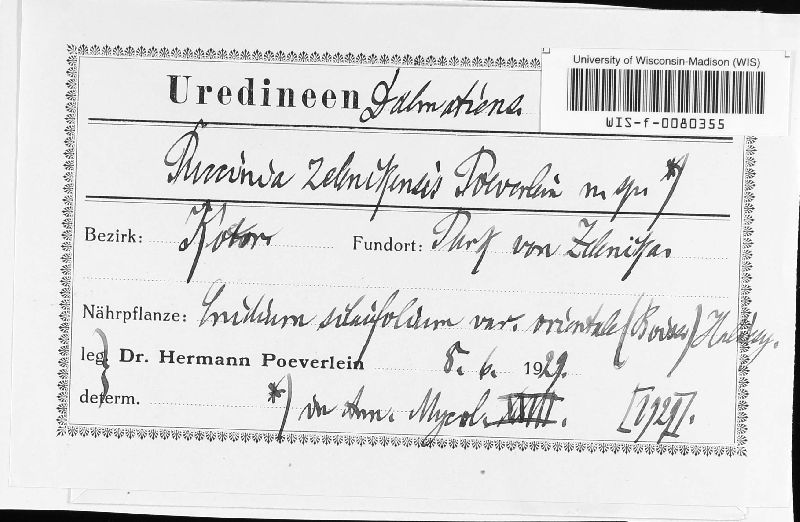 University of Wisconsin-Madison (WIS)
WIS-f-0080355
Uredineen Dalmatiens.
Puccinia zelenikensis Poeverlein n. sp. *)
Bezirk: Kotor. Fundort: Park von Zelenika.
Nährpflanze: Cnidium silaifolium var. orientale (Boiss.) Halácsy.
leg. Dr. Hermann Poeverlein 8. 6. 1929.
determ. *) in Ann. Mycol. [1929].